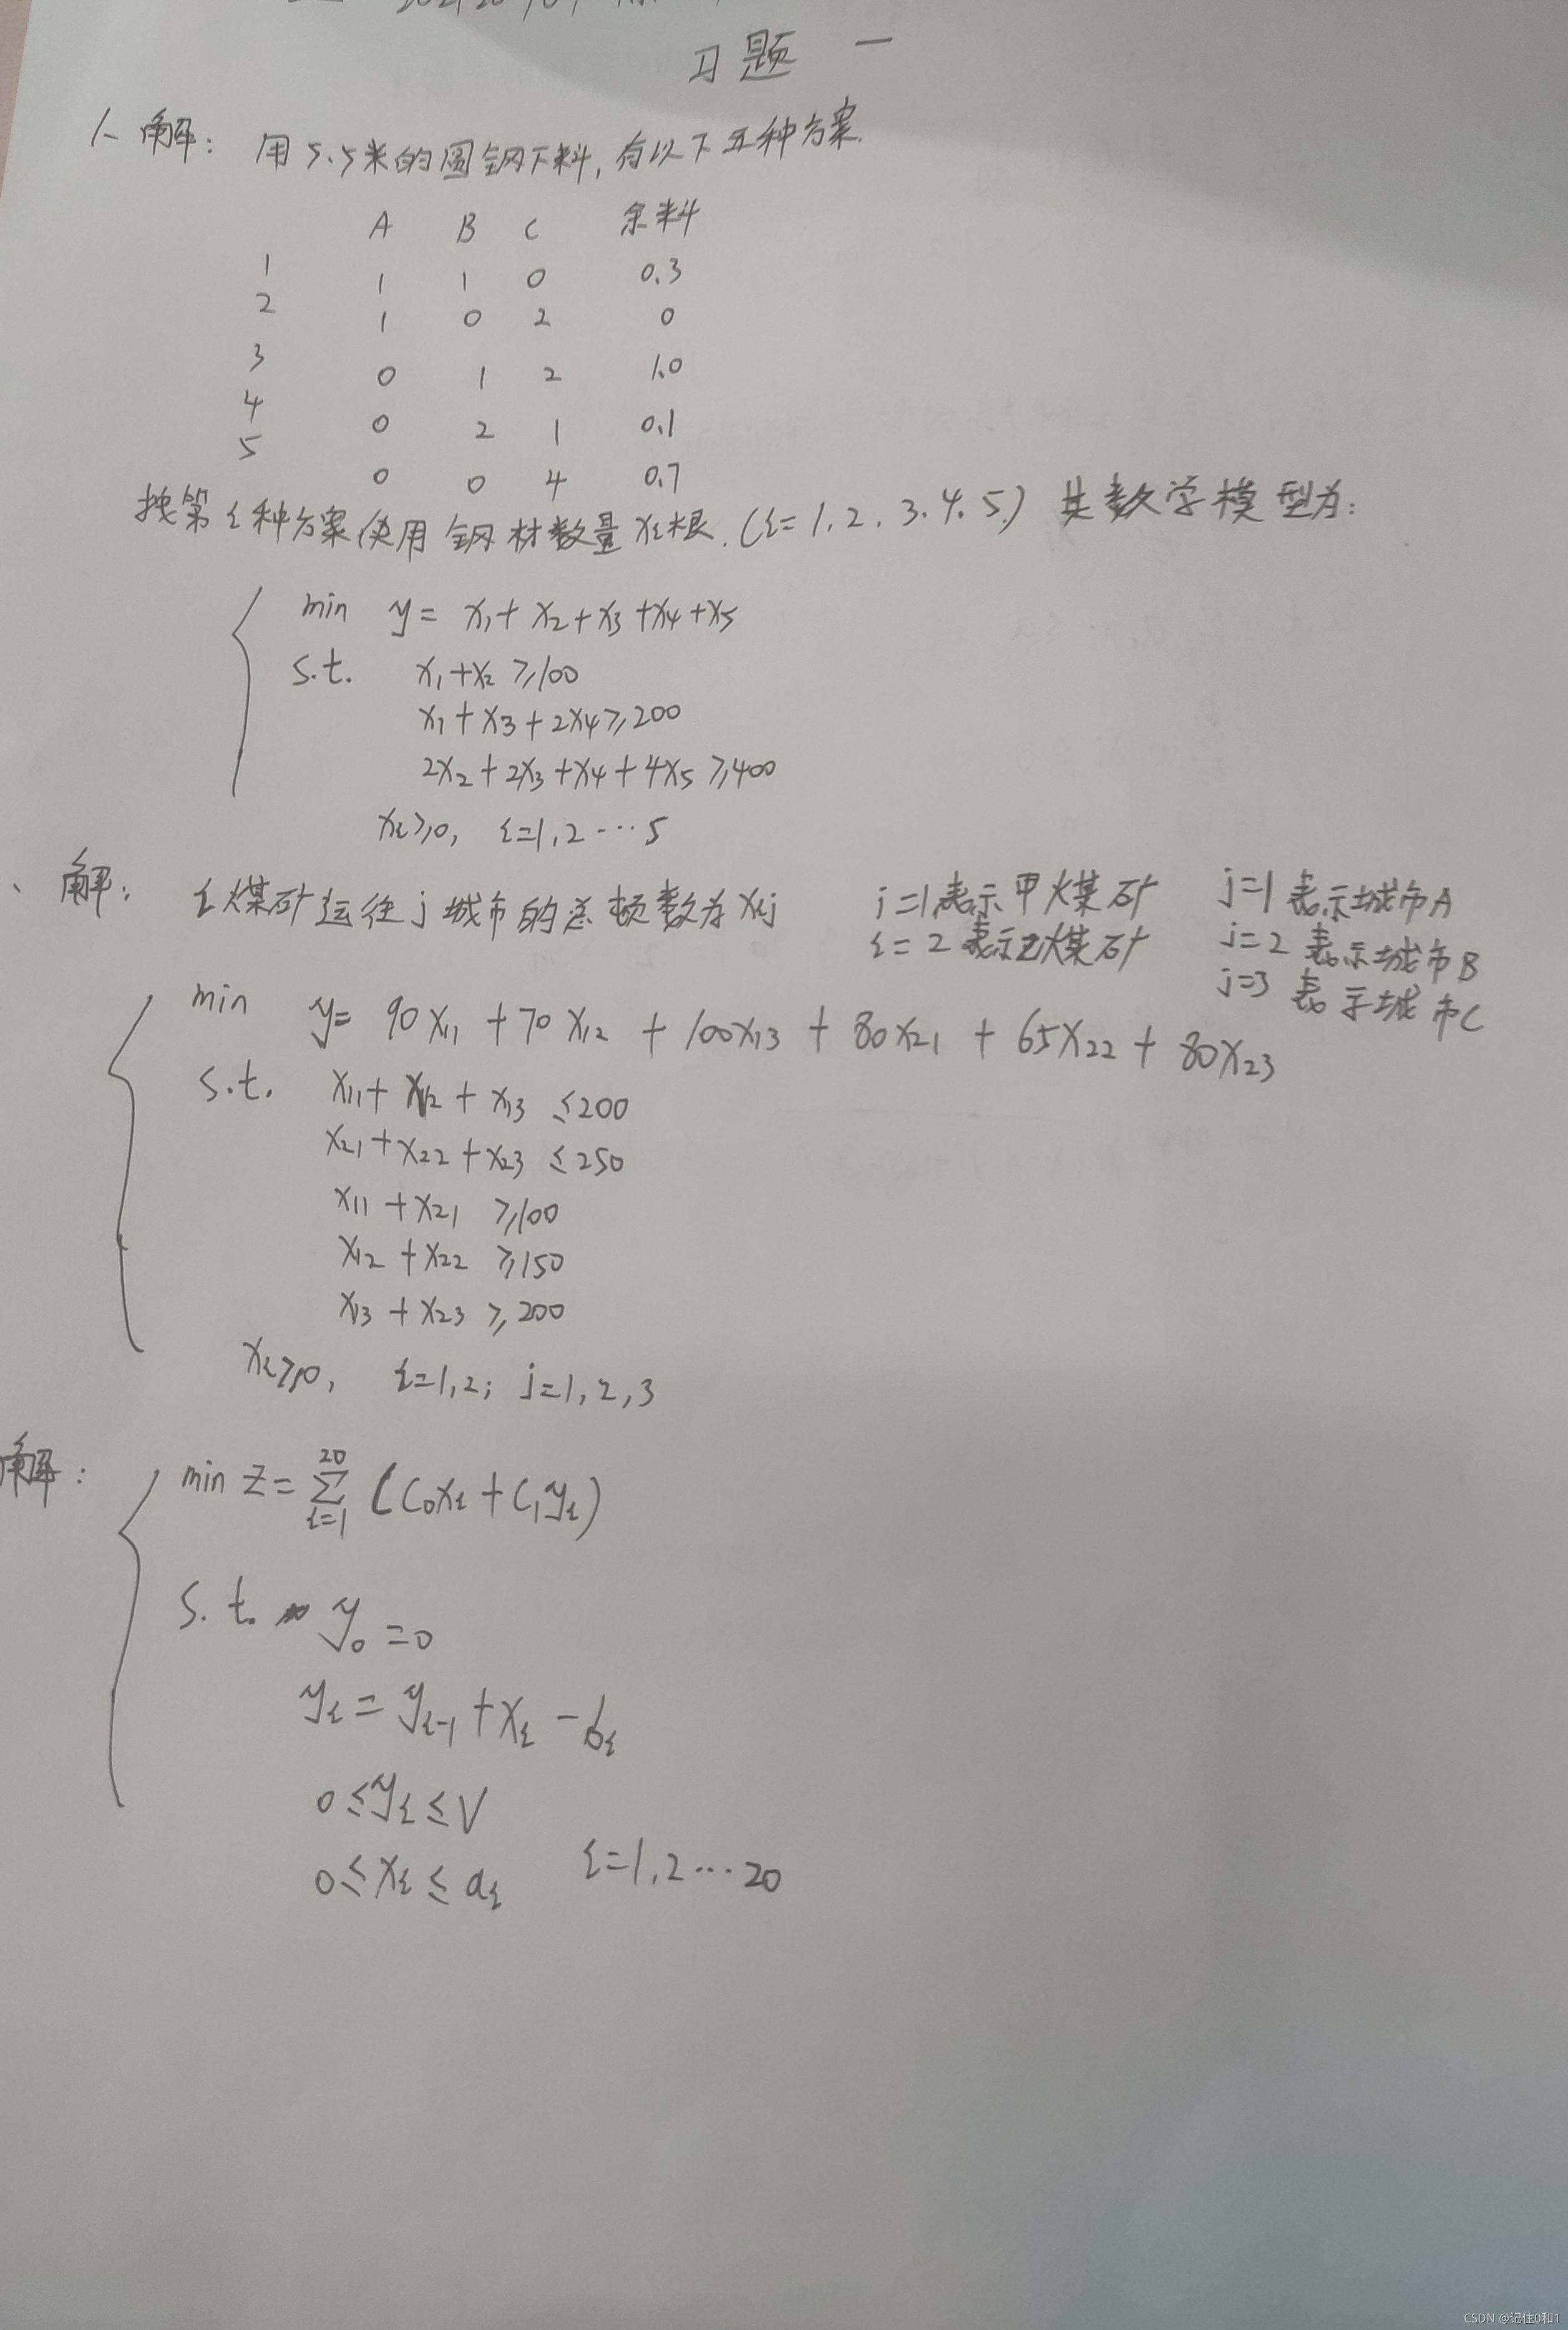 习题 一
解: 用5.5米的圆钢下料,有以下五种方案.
A B C 余料
1 1 1 0 0.3
2 1 0 2 0
3 0 1 2 1.0
4 0 2 1 0.1
5 0 0 4 0.7
按第i种方案使用钢材数量xi根.(i=1,2,3,4,5.) 其数学模型为:
min y= x₁+x₂+x₃+x₄+x₅
s.t. x₁+x₂≥100
x₁+x₃+2x₄≥200
2x₂+2x₃+x₄+4x₅≥400
xi≥0, i=1,2…5
、解: i煤矿运往j城市的总顿数为xij
i=1表示甲煤矿 j=1表示城市A
i=2表示乙煤矿 j=2表示城市B
j=3表示城市C
min y= 90x₁₁+70x₁₂+100x₁₃+80x₂₁+65x₂₂+80x₂₃
s.t. x₁₁+x₁₂+x₁₃≤200
x₂₁+x₂₂+x₂₃≤250
x₁₁+x₂₁≥100
x₁₂+x₂₂≥150
x₁₃+x₂₃≥200
xi≥0, i=1,2; j=1,2,3
解: min Z=∑_{i=1}^{20}(C₀xi+C₁yi)
s.t. y₀=0
yi=y_{i-1}+xi-bi
0≤yi≤V
0≤xi≤ai i=1,2…20
CSDN @记住0和1